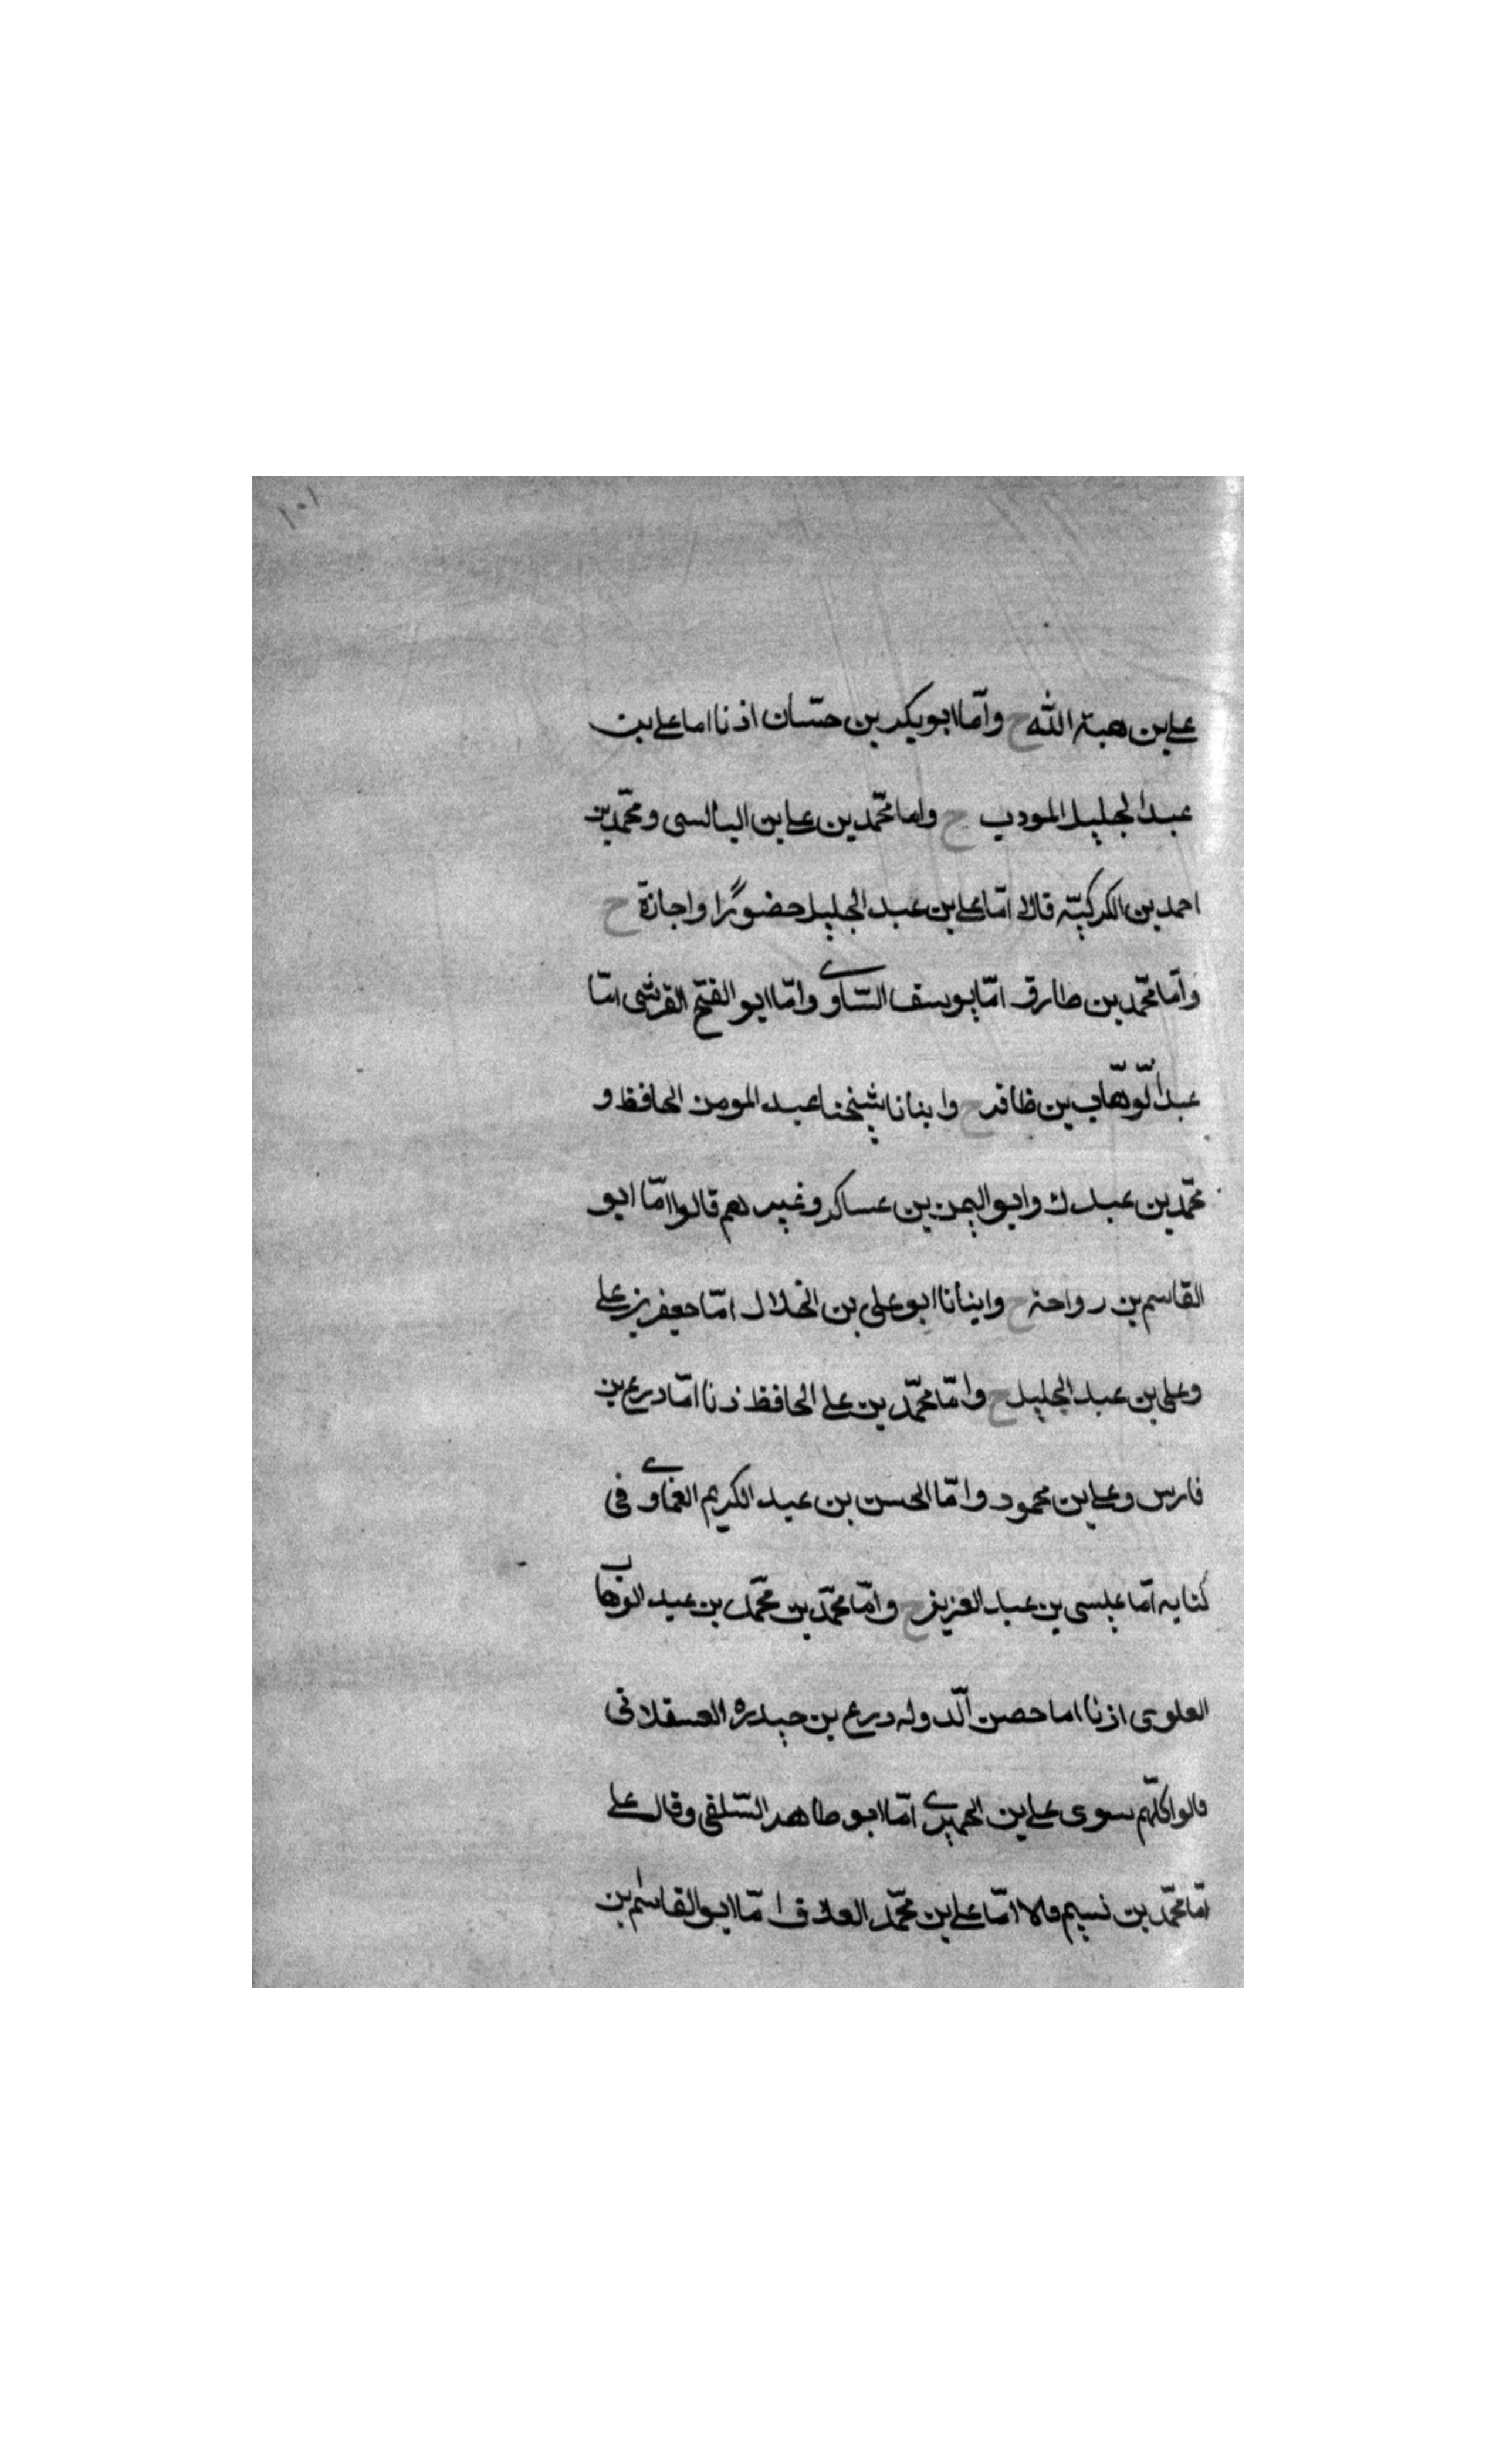 ١٠١
علي بن هبة الله ح وامّا ابو بكر بن حسّان اذنا اما علي بن
عبد الجليل المودب ح واما محمّد بن علي بن البالسى و محمّد بن
احمد بن الكركيّه قالا امّا علي بن عبد الجليل حضورًا واجازة ح
وامّا محمّد بن طارق امّا يوسف السّاوي وامّا ابو الفتح القرشى امّا
عبد الوّهّاب بن ظافر ح وابنانا شيخنا عبد المومن الحافظ و
محمّد بن عبدك وابو اليمن بن عساكر وغيرهم قالوا امّا ابو
القاسم بن رواحة ح وابنانا ابو على بن الخلال امّا جعفر بن علي
وعلى بن عبد الجليل ح وامّا محمّد بن علي الحافظ ذنا امّا درع بن
فارس وعلي بن محمود وامّا الحسن بن عبد الكريم الغماوي فى
كتابه امّا عيسى بن عبد العزيز ح وامّا محمّد بن محمّد بن عبد الوهاب
العلوى اذنا اما حصن الّدوله درع بن حيدره العسقلانى
قالوا كلّهم سوى علي بن الحميري امّا ابو طاهر السّلفى وقال علي
امّا محمّد بن نسيم قالا امّا علي بن محمّد العلاف امّا ابو القاسم بن